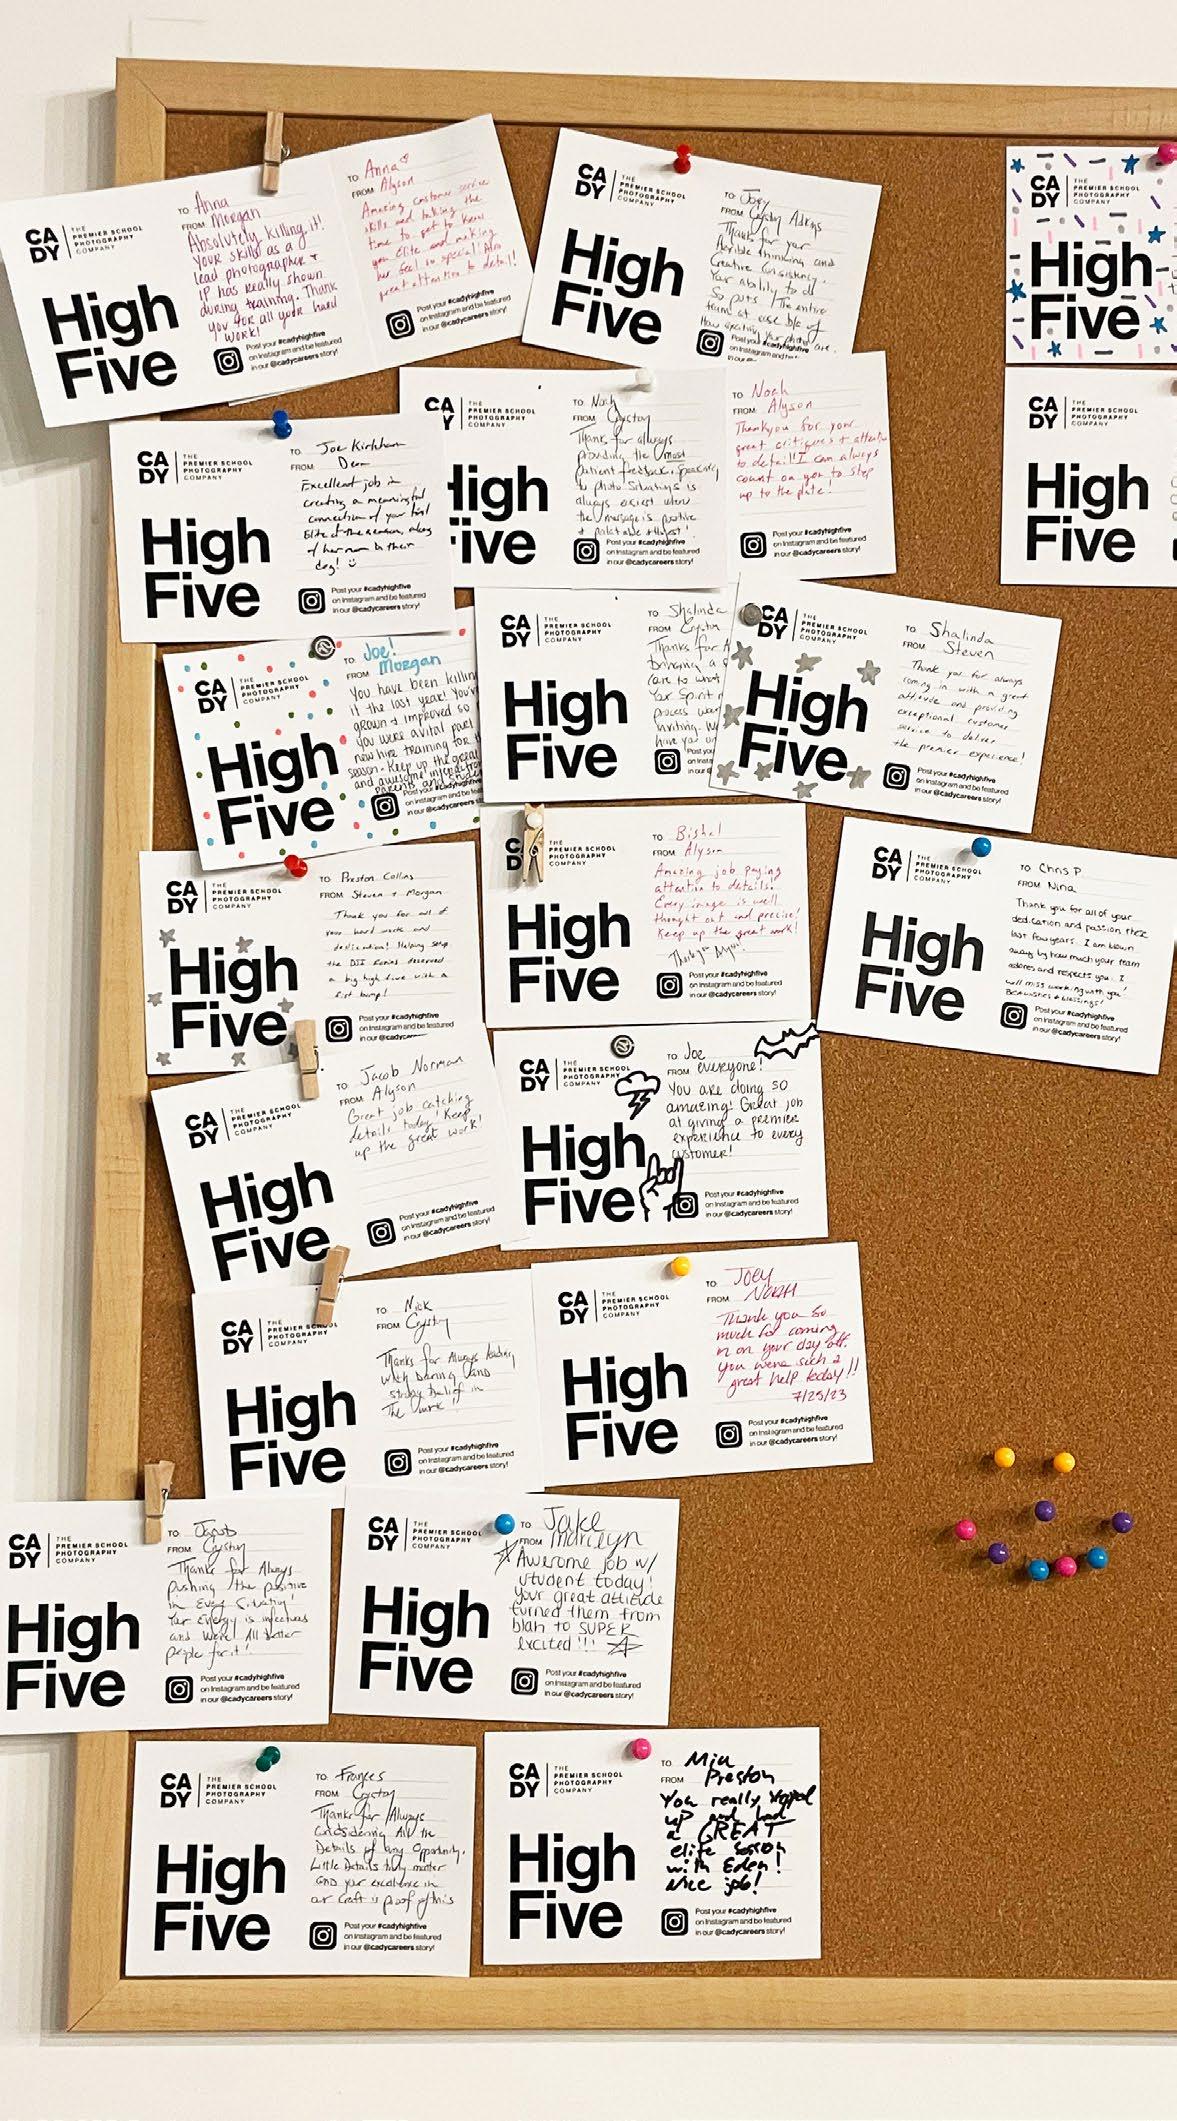 CADY
THE
PREMIER SCHOOL
PHOTOGRAPHY
COMPANY
High
Five
TO Anna
FROM Morgan
Absolutely killing it!
Your skills as a
lead photographer +
IP has really shown
during training. Thank
you for all your hard
work!
Post your #cadyhighfive
on Instagram and be featured
in our @cadycareers story!
TO Anna
FROM Alyson
Amazing customer service
skills and taking the
time to get to know
you Elite and making
her feel so special! Also
great attention to detail!
Post your #cadyhighfive
on Instagram and be featured
in our @cadycareers story!
CADY
THE
PREMIER SCHOOL
PHOTOGRAPHY
COMPANY
High
Five
TO Joey
FROM
Thanks for your
flexible thinking and
Creative Consistency.
Your ability to do
So puts The entire
team at ease b/c of
How exciting your photos are.
Post your #cadyhighfive
on Instagram and
in our
CADY
THE
PREMIER SCHOOL
PHOTOGRAPHY
COMPANY
High
Five
CADY
THE
PREMIER SCHOOL
PHOTOGRAPHY
COMPANY
High
Five
CADY
THE
PREMIER SCHOOL
PHOTOGRAPHY
COMPANY
High
Five
TO Joe Kirkham
FROM
Excellent job in
creating a meaningful
connection of your first
Elite of the season, along
of her mom & their
dog!
Post your #cadyhighfive
on Instagram and be featured
in our @cadycareers story!
CA
Y
THE
PREMIER SCHOOL
PHOTOGRAPHY
COMPANY
High
Five
TO Noah
FROM Crystay
Thanks for always
providing the most
patient feedback. Speaking
to photo Situations is
always easiest when
the message is positive
+ palatable
Post your #cadyhighfive
on Instagram and be featured
in our @cadycareers story!
TO Noah
FROM Alyson
Thankyou for your
great critiques + attention
to detail! I can always
count on you to step
up to the plate!
Post your #cadyhighfive
on Instagram and be featured
in our @cadycareers story!
CADY
THE
PREMIER SCHOOL
PHOTOGRAPHY
COMPANY
High
Five
TO Joe!
FROM Morgan
You have been killin
it the last year! You've
grown + improved so
you were a vital part
new hire training for
season. Keep up the great
and awesome interaction
parents and
Post your #cadyhighfive
on Instagram and be
in our @cadycareers
CADY
THE
PREMIER SCHOOL
PHOTOGRAPHY
COMPANY
High
Five
TO Shalinda
FROM Crystay
Thanks for A
bringing a
care to what
Your Spirit
process
inviting. W
have you on
Post you
on Insta
in our
CADY
THE
PREMIER SCHOOL
PHOTOGRAPHY
COMPANY
High
Five
TO Shalinda
FROM Steven
Thank you for always
coming in with a great
attitude and providing
exceptional customer
service to deliver
the premier experience!
Post your #cadyhighfive
on Instagram and be featured
in our @cadycareers story!
CADY
THE
PREMIER SCHOOL
PHOTOGRAPHY
COMPANY
High
Five
TO Preston Collins
FROM Steven + Morgan
Thank you for all of
your hard work and
dedication! Helping setup
the DJI Ronins deserved
a big high five with a
fist bump!
Post your #cadyhighfive
on Instagram and be featured
in our @cady
THE
PREMIER SCHOOL
PHOTOGRAPHY
COMPANY
High
Five
TO Bishal
FROM Alyson
Amazing job paying
attention to details!
Every image is well
thought out and precise!
Keep up the great work!
Thank you
Post your #cadyhighfive
on Instagram and be featured
in our @cadycareers story!
CADY
THE
PREMIER SCHOOL
PHOTOGRAPHY
COMPANY
High
Five
TO Chris P
FROM Nina
Thank you for all of your
dedication and passion these
last few years. I am blown
away by how much your team
adores and respects you. I
will miss working with you!
Best wishes + blessings!
Post your #cadyhighfive
on Instagram and be featured
in our @cadycareers story!
CADY
THE
PREMIER SCHOOL
PHOTOGRAPHY
COMPANY
High
Five
TO Jacob Norman
FROM Alyson
Great job catching
details today! Keep
up the great work!
Post your #cadyhighfive
on Instagram and be featured
in our @cadycareers story!
CADY
THE
PREMIER SCHOOL
PHOTOGRAPHY
COMPANY
High
Five
TO Joe
FROM everyone!
You are doing so
amazing! Great job
at giving a premier
experience to every
customer!
Post your #cadyhighfive
on Instagram and be featured
in our @cadycareers story!
CADY
THE
PREMIER SCHOOL
PHOTOGRAPHY
COMPANY
High
Five
TO Nick
FROM Crystay
Thanks for Always leading
with Daring and
strong belief in
The work!
Post your #cadyhighfive
on Instagram and be featured
in our @cadycareers story!
CADY
THE
PREMIER SCHOOL
PHOTOGRAPHY
COMPANY
High
Five
TO Joey
FROM NOAH
Thank you so
much for coming
in on your day off.
You were such a
great help today!!
7/25/23
Post your #cadyhighfive
on Instagram and be featured
in our @cadycareers story!
CADY
THE
PREMIER SCHOOL
PHOTOGRAPHY
COMPANY
High
Five
TO Jacob
FROM Crystay
Thanks for Always
pushing the positive
in Every Situation!
Your Energy is infectious
and We're All better
people for it!
Post your #cadyhighfive
on Instagram and be featured
in our @cadycareers story!
CADY
THE
PREMIER SCHOOL
PHOTOGRAPHY
COMPANY
High
Five
TO Jake
FROM Marilyn
Awesome job w/
student today!
Your great attitude
turned them from
blah to SUPER
excited!!!
Post your #cadyhighfive
on Instagram and be featured
in our @cadycareers story!
CADY
THE
PREMIER SCHOOL
PHOTOGRAPHY
COMPANY
High
Five
TO Frances
FROM Crystay
Thanks for Always
considering All the
Details of any Opportunity.
Little Details truly matter
and your excellence in
our craft is proof of this
Post your #cadyhighfive
on Instagram and be featured
in our @cadycareers story!
CADY
THE
PREMIER SCHOOL
PHOTOGRAPHY
COMPANY
High
Five
TO Mia
FROM Preston
You really stepped
up and had
a GREAT
elite session
with Eden!
Nice job!
Post your #cadyhighfive
on Instagram and be featured
in our @cadycareers story!